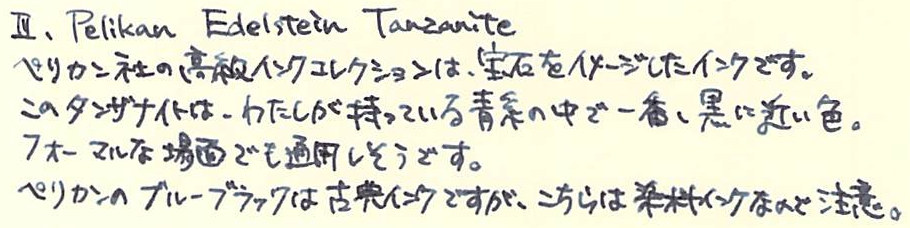 Ⅲ、Pelikan Edelstein Tanzanite
ペリカン社の高級インクコレクションは、宝石をイメージしたインクです。
このタンザナイトは、わたしが持っている青系の中で一番、黒に近い色。
フォーマルな場面でも通用しそうです。
ペリカンのブルーブラックは古典インクですが、こちらは染料インクなので注意。